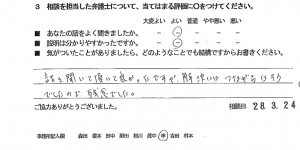 3 相談を担当した弁護士について、当てはまる評価に○をつけてください。
大変よい よい 普通 やや悪い 悪い
■ あなたの話をよく聞きましたか。
■ 説明は分かりやすかったですか。
■ 気がついたことがありましたら、どのようなことでも結構ですからお書きください。
話を聞いて頂いて良かったですが 解決には つながらなそう
でしたので 残念でした。
ご協力ありがとうございました。
相談日 28.3.24
事務局記入欄 森田 菊水 田中 相川 真中 中 吉田 村本